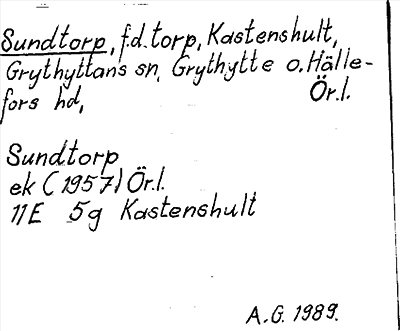 Sundtorp, f.d. torp, Kastenshult,
Grythyttans sn, Grythytte o. Hälle-
fors hd, Ör.l.
Sundtorp
ek (1957) Ör.l.
11E 5g Kastenshult
A.G. 1989.